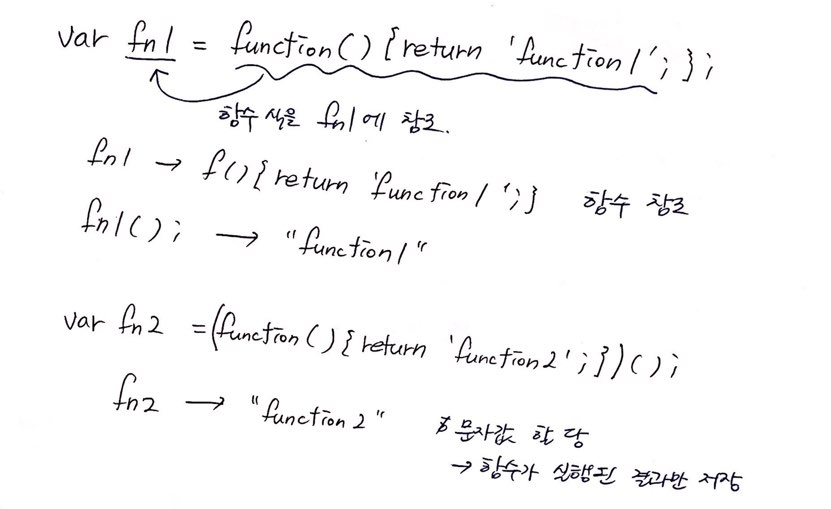 var fn1 = function() {return 'function1'; };
함수 식을 fn1에 참조.
fn1 → f(){return 'function1';} 함수 참조
fn1(); → "function1"
var fn2 = (function(){return 'function2';})();
fn2 → "function2"
문자값 할당
→ 함수가 실행된 결과만 저장